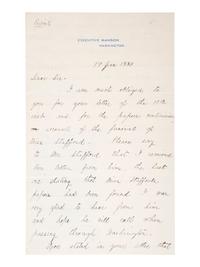 Private
EXECUTIVE MANSION,
WASHINGTON.
19 Jan 1881
Dear Sir -
I am much obliged to
you for your letter of the 17th
inst and for the papers
in the removal of
Miss Stafford. Please say
to Mr Stafford that I received
him the last
week stating that Miss Stafford's
papers had been found. I was
very glad to hear from him
and hope he will call when
passing through Washington.
You stated in your letter that